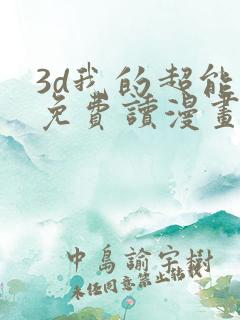 3d我的超能
免費讀漫畫
中島諭宇樹
未任同意禁止転載